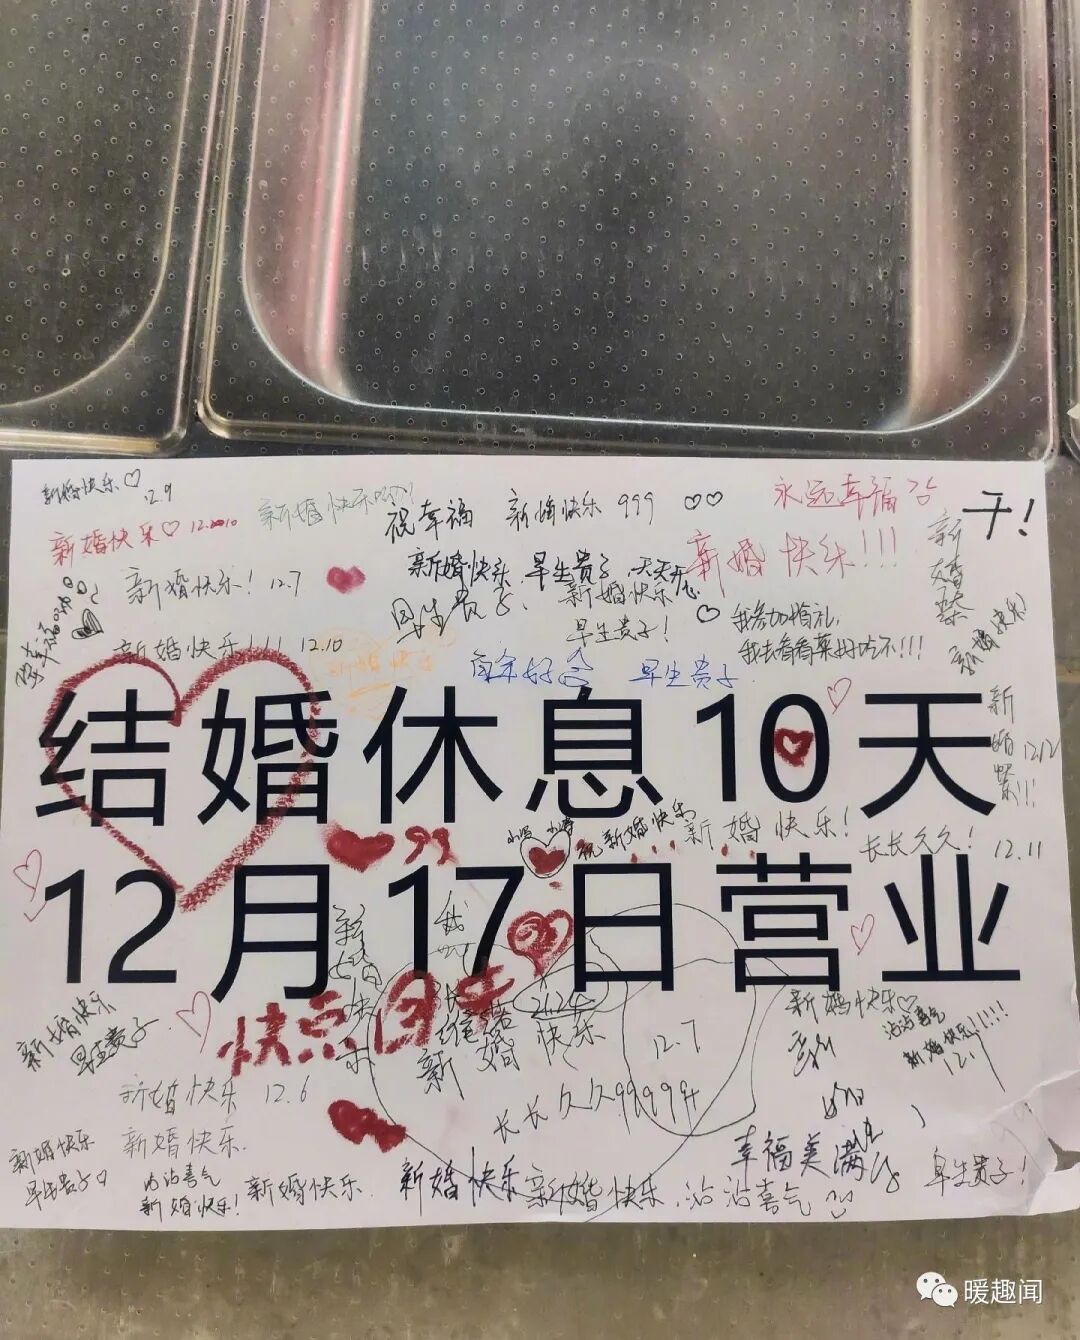 新婚快乐♡ 12.9
新婚快乐♡ 12.10
新婚快乐
祝幸福
新婚快乐 999 ♡♡
永远幸福
干!
新婚快乐! 12.7
新婚快乐 早生贵子 天天开心
新婚快乐!!!
早生贵子.
新婚快乐
早生贵子!
我参加婚礼,
我去看看菜好吃不!!!
新婚快乐
新婚快乐!!! 12.10
百年好合 早生贵子
结婚休息10天
新婚 12.12
祝新婚快乐
新婚快乐!
长长久久! 12.11
99
12月17日营业
新婚快乐
快点回来
新婚快乐
早生贵子
新婚快乐
12.7
新婚快乐♡
沾沾喜气
新婚快乐!!!!!
新婚快乐 12.6
长长久久
新婚快乐
早生贵子
新婚快乐.
沾沾喜气
新婚快乐!
新婚快乐.
新婚快乐
新婚快乐.沾沾喜气
幸福美满
早生贵子!
暖趣闻